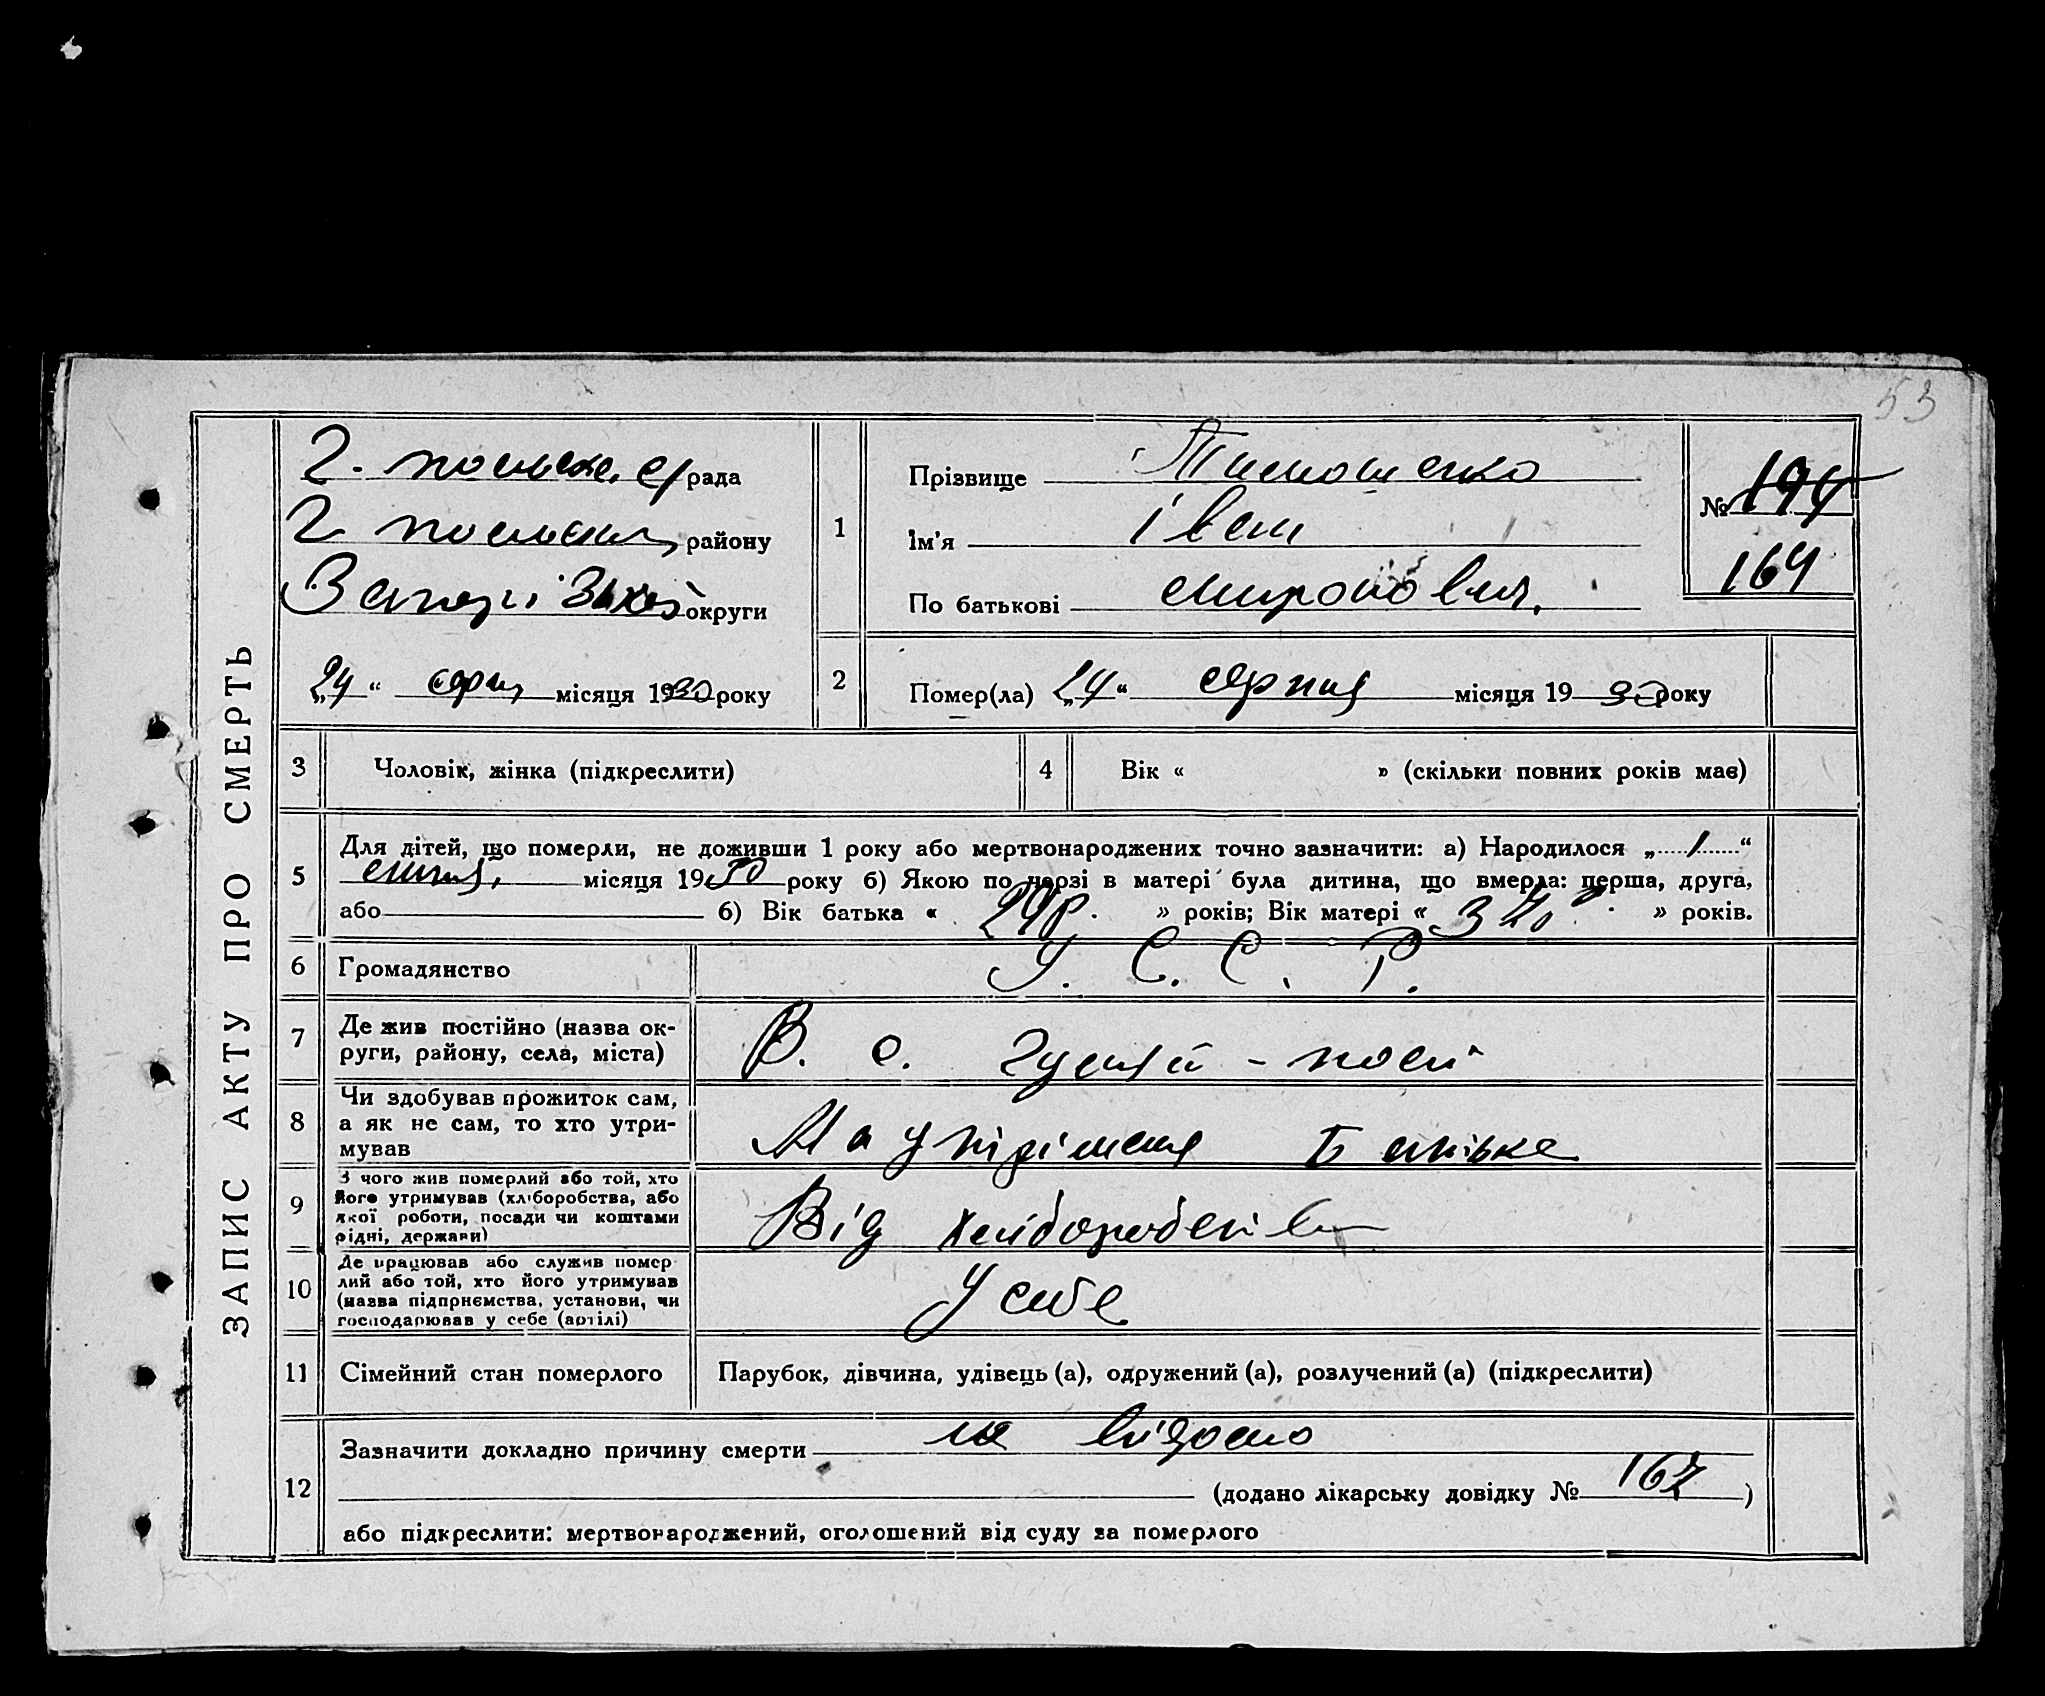 53
ЗАПИС АКТУ ПРО СМЕРТЬ
Г. польська с/рада
Г польськ, району
Запорізької округи
24 " серп, місяця 1930 року
1
Прізвище Тимошенко
Ім'я Іван
По батькові Миронович.
№ 194
164
2
Помер(ла) „24" серпня місяця 1930 року
3 Чоловік, жінка (підкреслити)
4 Вік « » (скільки повних років має)
5
Для дітей, що померли, не доживши 1 року або мертвонароджених точно зазначити: а) Народилося „ 1 “
липня, місяця 1930 року б) Якою по черзі в матері була дитина, що вмерла: перша, друга,
або б) Вік батька « 24р. » років; Вік матері « » років.
6 Громадянство У. С. С. Р.
7 Де жив постійно (назва ок-
руги, району, села, міста) В. с. Гуляй - поеи
8 Чи здобував прожиток сам,
а як не сам, то хто утри-
мував На утріманя Батька
9 З чого жив померлий або той, хто
його утримував (хліборобства, або
якої роботи, посади чи коштами
рідні, держави) Від хліборобства
10 Де працював або служив помер
лий або той, хто його утримував
(назва підприємства, установи, чи
господарював у себе (артілі) У себе
11 Сімейний стан померлого Парубок, дівчина, удівець (а), одружений (а), розлучений (а) (підкреслити)
12
Зазначити докладно причину смерти не відомо
(додано лікарську довідку № 167 )
або підкреслити: мертвонароджений, оголошений від суду за померлого